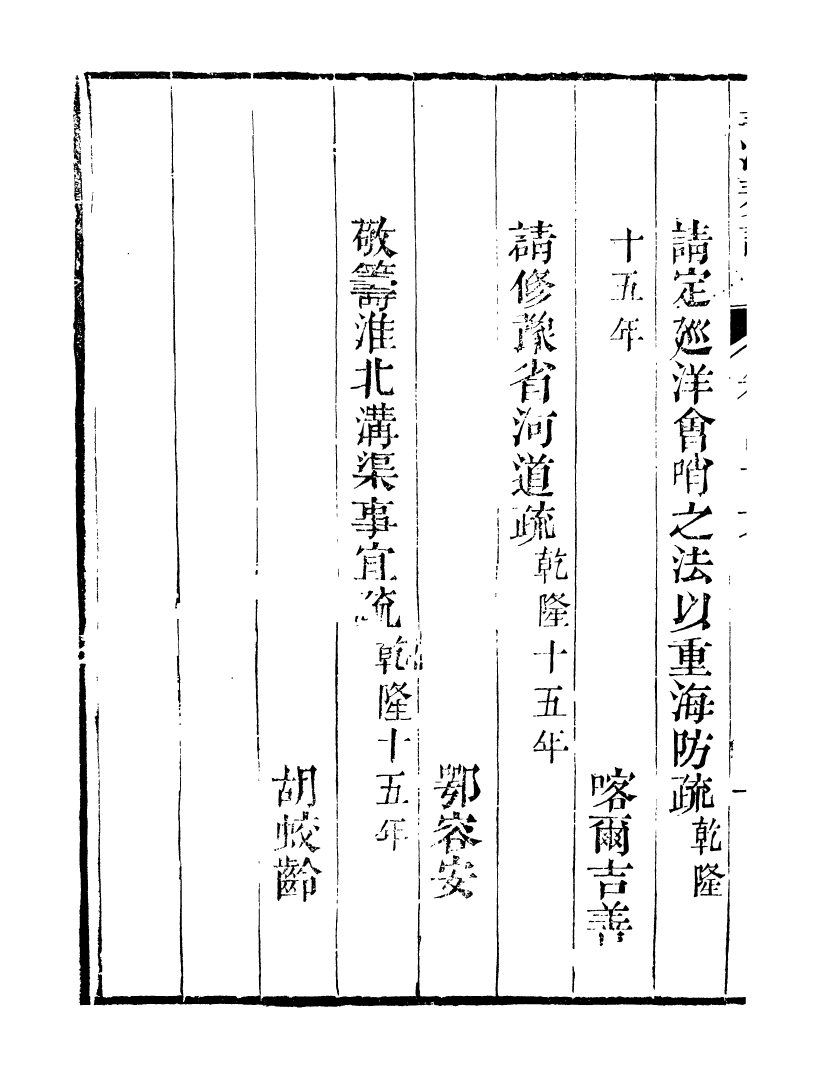 請定廵洋會哨之法以重海防疏乾隆
十五年
喀爾吉善
請修豫省河道疏乾隆十五年
鄂容安
敬籌淮北溝渠事宜疏乾隆十五年
胡蛟齡